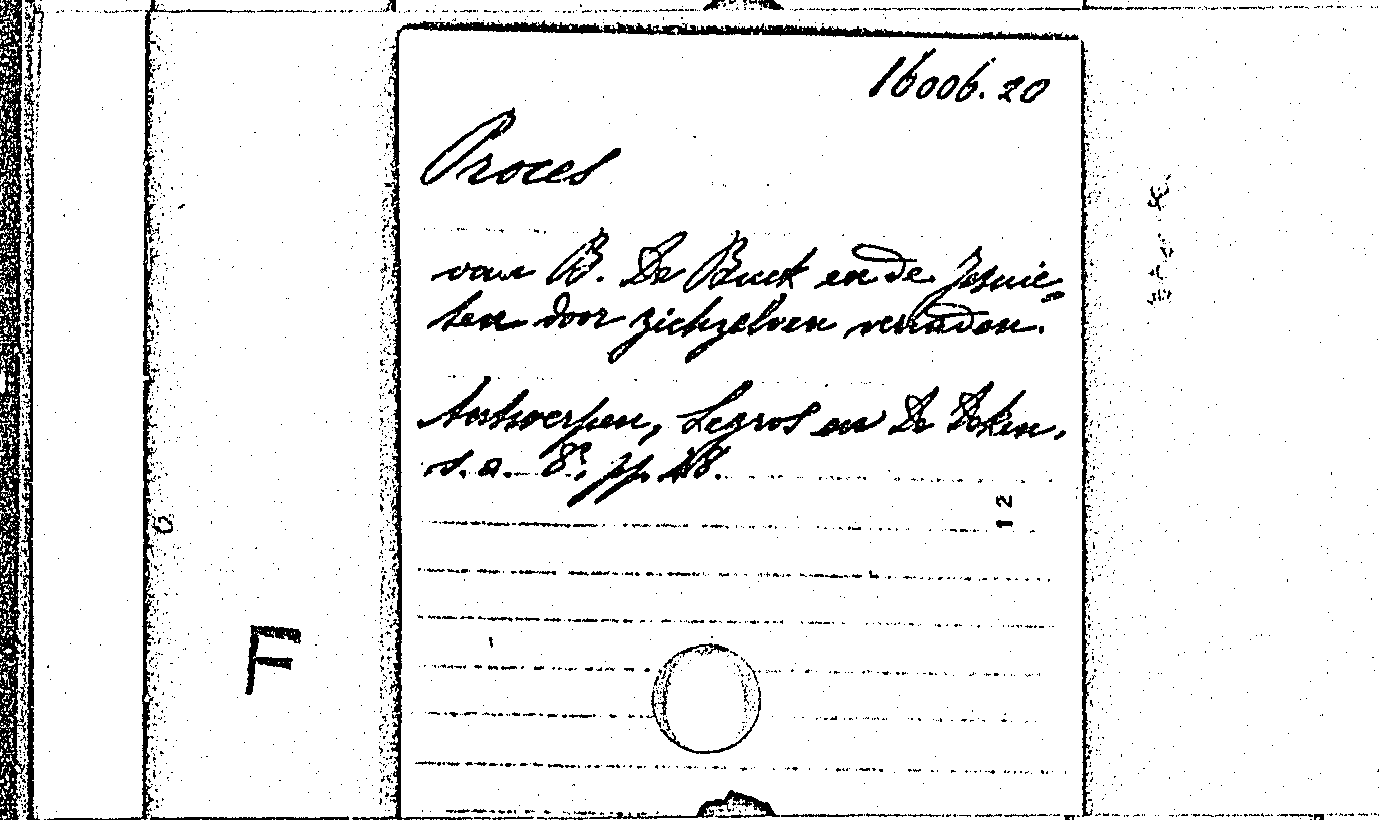 16006.20
Proces
van B. De Buck en de Jesuie-
ten door zichzelven verraden.
Antwerpen, Legros en De Deken.
s. a. 8°, pp. 48.
12
F